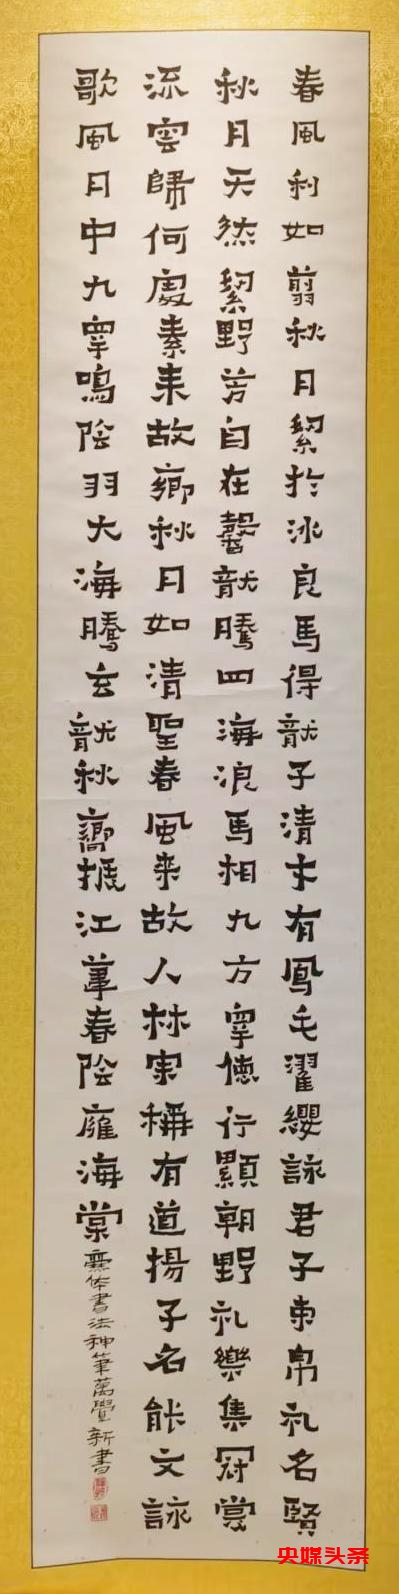 春風利如翦秋月絜於冰良馬得龍子清才有鳳毛濯纓詠君子束帛礼名賢
秋月天然絜野芳自在馨龍騰四海浪馬相九方皋德行顯朝野礼樂集冠裳
流雲歸何處素来故鄉秋月如清聖春風来故人林宗稱有道揚子名能文詠
歌風日中九皋鳴陰羽大海騰玄龍秋振江春陰海棠
爨体書法神筆萬覺新書
央媒头条